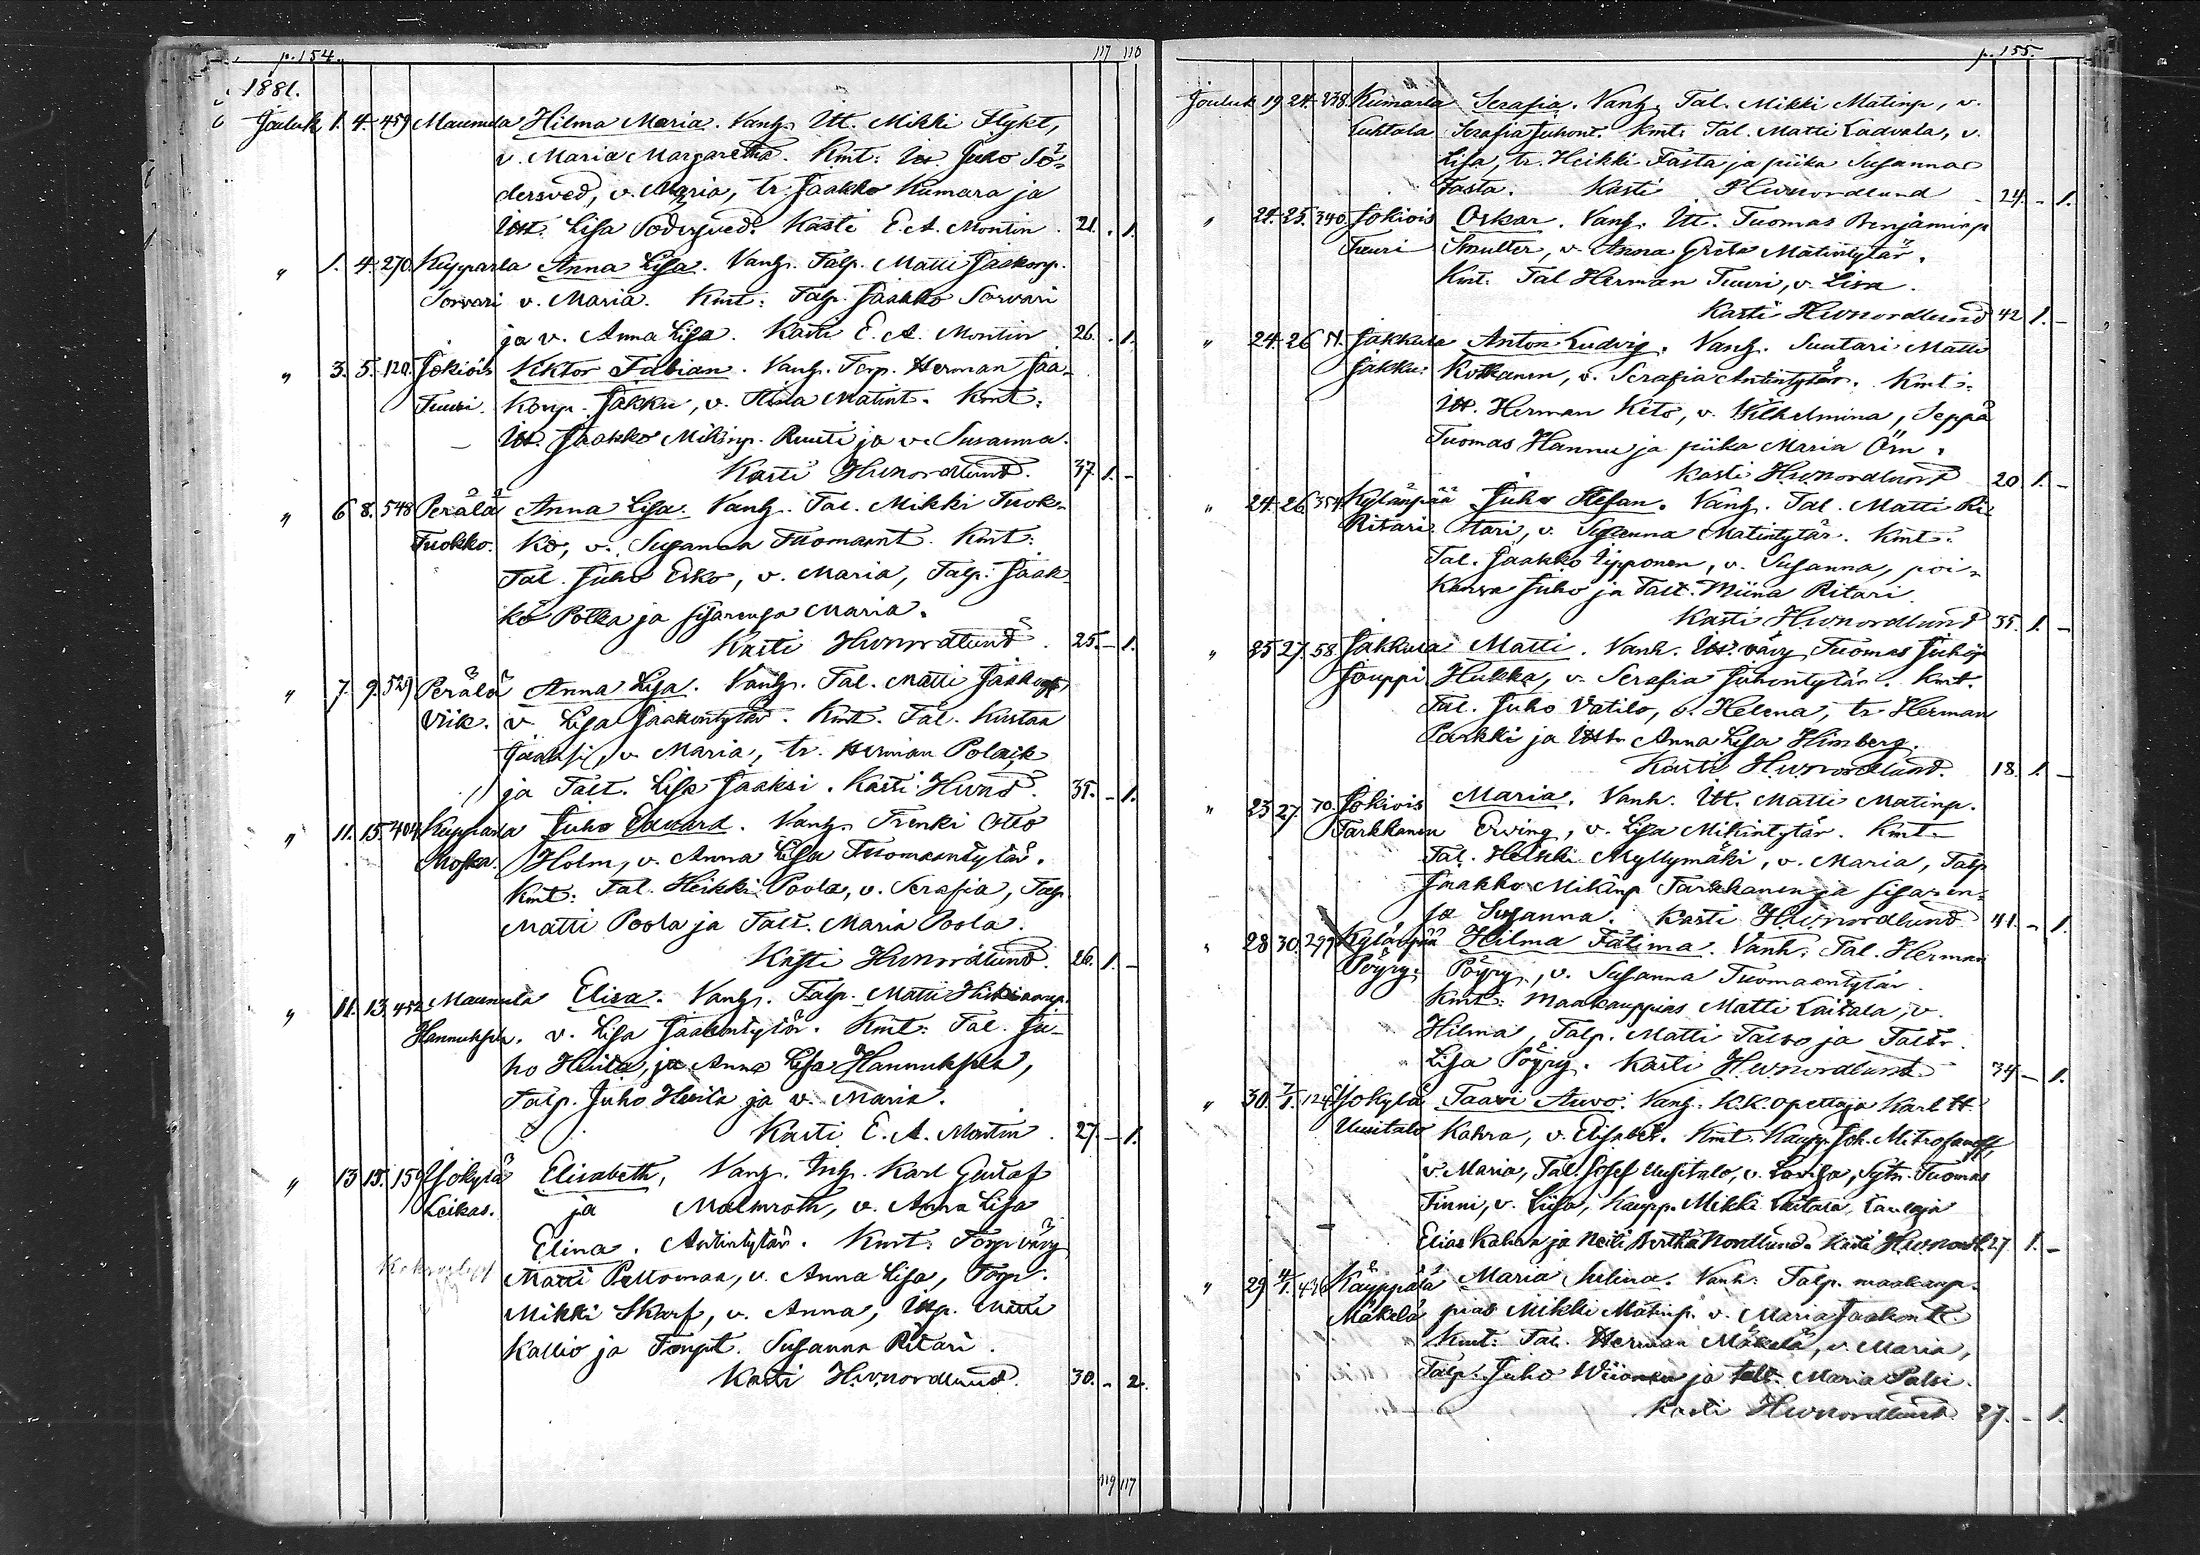 p. 154. 117 110
1881.
Jouluk 1. 4. 459 Maunula Hilma Maria. Vanh. Itt. Mikki Flykt,
v. Maria Margaretha. Kmt: Itt. Juho Sö-
dersved, v. Maria, tr. Jaakko Kumara ja
Ittt. Lisa Södersved. Kasti E. A. Montin. 21. . 1.
" 1. 4. 270. Kupparla Anna Lisa. Vanh. Talp. Matti Jaakonp.
Sorvari v. Maria. Kmt: Talp. Jaakko Sorvari
ja v. Anna Lisa. Kasti E. A. Montin 26. . 1.
" 3. 5. 120. Jokiois Viktor Fabian. Vanh. Torp. Herman Jaa-
Tuuri. konp. Jakku, v. Tiina Matint. Kmt:
Itt. Jaakko Mikinp. Ruuti ja v. Susanna.
Kasti HWNordlund. 37. 1. -
" 6 8. 548 Perälä Anna Lisa. Vanh. Tal. Mikki Tuok-
Tuokko. ko, v. Susanna Tuomaant. Kmt:
Tal. Juho Esko, v. Maria, Talp. Jaak-
ko Polka ja sisarensa Maria.
Kasti HWNordlund. 25. - 1.
" 7. 9. 529 Perälä Anna Lisa. Vanh. Tal. Matti Jaakonp,
Viik. v. Lisa Jaakontytär. Kmt. Tal. Kustaa
Jaaksi, v. Maria, tr. Herman Polaik
ja Talt. Lisa Jaaksi. Kasti HWNd. 35. - 1.
" 11. 15. 404 Kupparla Juho Edvard. Vanh. Trenki Otto
Moska. Holm, v. Anna Lisa Tuomaantytär.
Kmt: Tal. Heikki Poola, v. Serafia, Talp.
Matti Poola ja Talt. Maria Poola.
Kasti HWNordlund. 26. 1. -
" 11. 13. 452 Maunula Elisa. Vanh. Talp. Matti Heikinp.
Hannuksela. v. Lisa Jaakontytär. Kmt: Tal. Ju-
ho Heitta, ja Anna Lisa Hannuksela,
Talp. Juho Heitta ja v. Maria.
Kasti E. A. Montin. 27. - 1.
" 13 15. 159 Yjokylä Elisabeth, Vanh. Inh. Karl Gustaf
Leikas. ja Malmroth, v. Anna Lisa
Elina. Antintytär. Kmt: Torp vävy
Matti Peltomaa, v. Anna Lisa, Torp.
Mikki Skarf, v. Anna, Itp. Matti
Kallio ja Torpt. Susanna Ritari.
Kasti HWNordlund. 30. - 2.
119 117
p. 155.
Jouluk 19 24. 238. Kumarla Serafia. Vanh. Tal. Mikki Matinp, v.
Luhtala Serafia Juhont. Kmt: Tal. Matti Ladvala, v.
Lisa, tr. Heikki Fasta ja piika Susanna
Fasta. Kasti HWNordlund 24. - 1.
" 24. 25. 340. Jokiois Oskar. Vanh. Itt. Tuomas Benjaminp
Tuuri Smulter, v. Anna Greta Matintytär.
Kmt. Tal Herman Tuuri, v. Lisa.
Kasti HWNordlund 42 1. -
" 24. 26 51. Jakkula Anton Ludvig. Vanh. Suutari Matti
Jakku: Kotkanen, v. Serafia Antintytär. Kmt:
Itt. Herman Keto, v. Wilhelmina, Seppä
Tuomas Hannu ja piika Maria Örn.
Kasti HWNordlund 20 1. -
" 24. 26. 354 Kylänpää Juho Stefan. Vanh. Tal. Matti Ri-
Ritari. tari, v. Susanna Matintytär. Kmt:
Tal. Jaakko Lipponen, v. Susanna, poi-
kansa Juho ja Talt. Miina Ritari.
Kasti HWNordlund 35. 1. -
" 25 27. 58. Jakkula Matti. Vanh. Itt. vävy Tuomas Juhop
Jouppi Hukka, v. Serafia Juhontytär. Kmt.
Tal. Juho Vatilo, v. Helena, tr. Herman
Parkki ja Ittt. Anna Lisa Himberg.
Kasti HWNordlund. 18. 1. -
" 23 27. 70. Jokiois Maria. Vanh. Itt. Matti Matinp.
Tarkkanen Erving, v. Lisa Mikintytär. Kmt:
Tal. Heikki Myllymäki, v. Maria, Talp
Jaakko Mikinp Tarkkanen ja sisaren-
sa Susanna. Kasti HWNordlund 41. - 1.
" 28 30. 299 Kylänpää Hilma Fatima. Vanh. Tal. Herman
Pöyry. Pöyry, v. Susanna Tuomaantytär.
Kmt: Maakauppias Matti Laitala, v.
Hilma, Talp. Matti Talso ja Taltr.
Lisa Pöyry. Kasti HWNordlund. 34 - 1.
" 30. 7/1. 124 Yjokylä Taavi Arvo. Vanh. K.K. opettaja Karl H
Uusitalo Kahra, v. Elisabet. Kmt. Kaupp. Joh. Mitrofanoff,
v. Maria, Tal. Josef Uusitalo, v. Lovisa, Sytn. Tuomas
Finni, v. Liisa, Kaupp. Mikki Laitala, Laulaja
Elias Kahra ja Neiti Bertha Nordlund. Kasti HWNordl. 27 1. -
" 29 4/1. 436 Käyppälä Maria Milina. Vanh: Talp. maakaup-
Mäkelä pias Mikki Matinp. v. Maria Jaakont.
Kmt: Tal. Herman Mäkelä, v. Maria,
Talp. Juho Wiionen ja talt. Maria Palsi.
Kasti HWNordlund. 27. - 1.